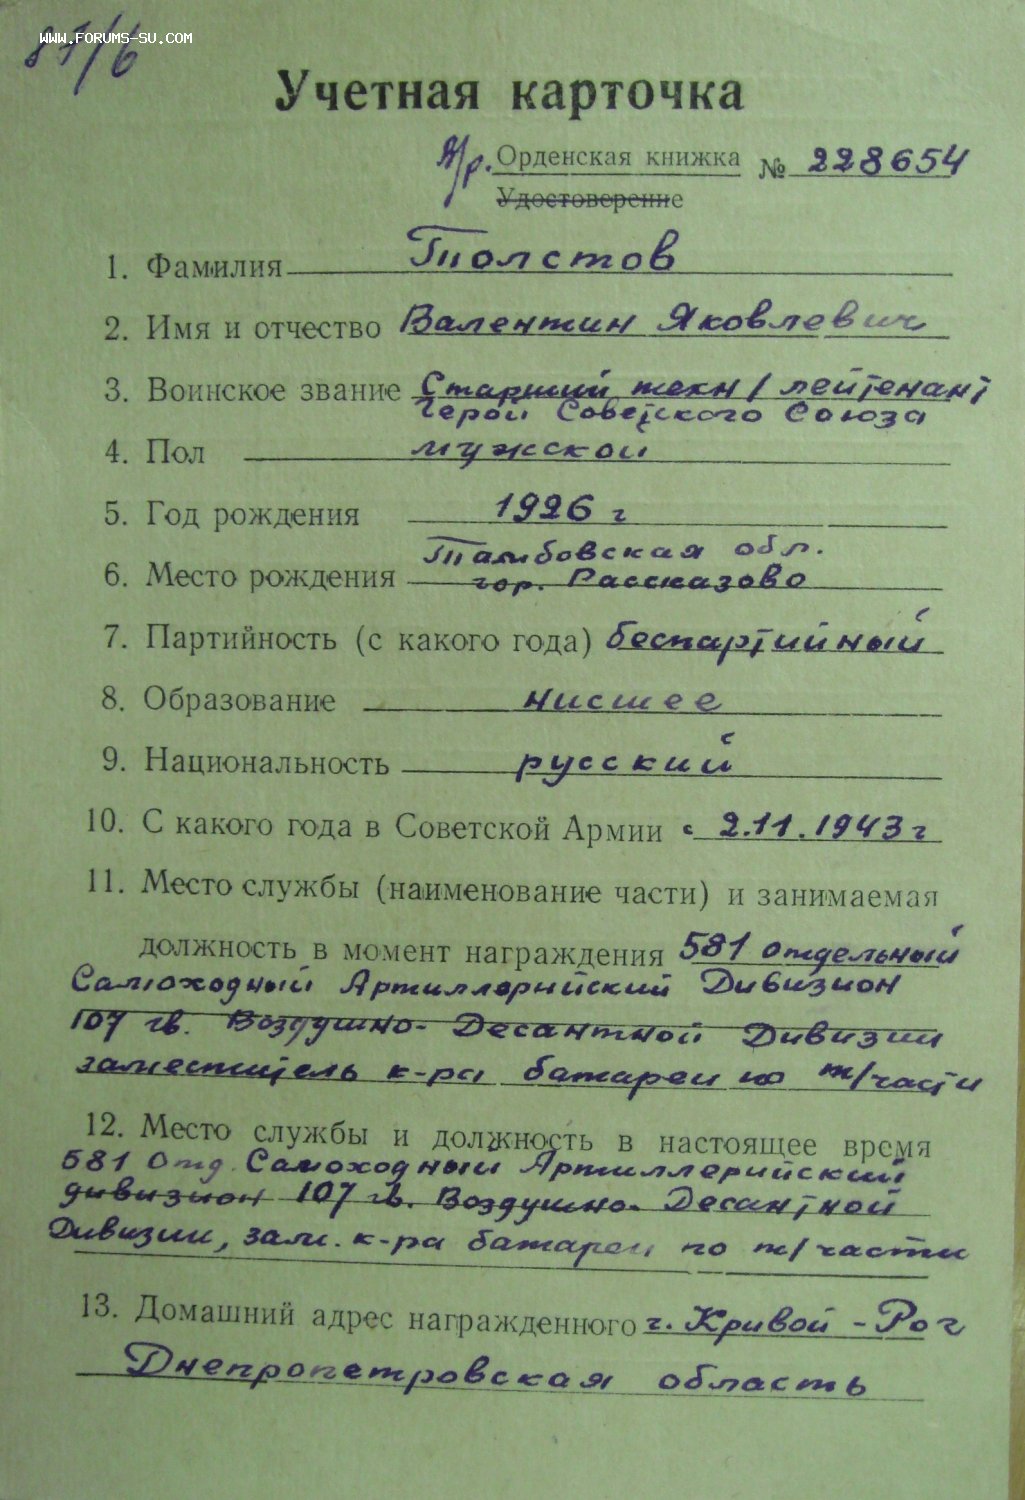 www.forums-su.com
87/6
Учетная карточка
Орденская книжка № 228654
Удостоверение
1. Фамилия Толстов
2. Имя и отчество Валентин Яковлевич
3. Воинское звание Старший техн/лейтенант
Герой Советского Союза
4. Пол мужской
5. Год рождения 1926 г
Тамбовская обл.
6. Место рождения гор. Рассказово
7. Партийность (с какого года) беспартийный
8. Образование нисшее
9. Национальность русский
10. С какого года в Советской Армии с 2.11.1943 г
11. Место службы (наименование части) и занимаемая
должность в момент награждения 581 отдельный
Самоходный Артиллерийский Дивизион
107 гв. Воздушно-Десантной Дивизии
заместитель к-ра батареи по т/части
12. Место службы и должность в настоящее время
581 Отд. Самоходный Артиллерийский
дивизион 107 гв. Воздушно-Десантной
Дивизии, зам. к-ра батареи по т/части
13. Домашний адрес награжденного г. Кривой-Рог
Днепропетровская область